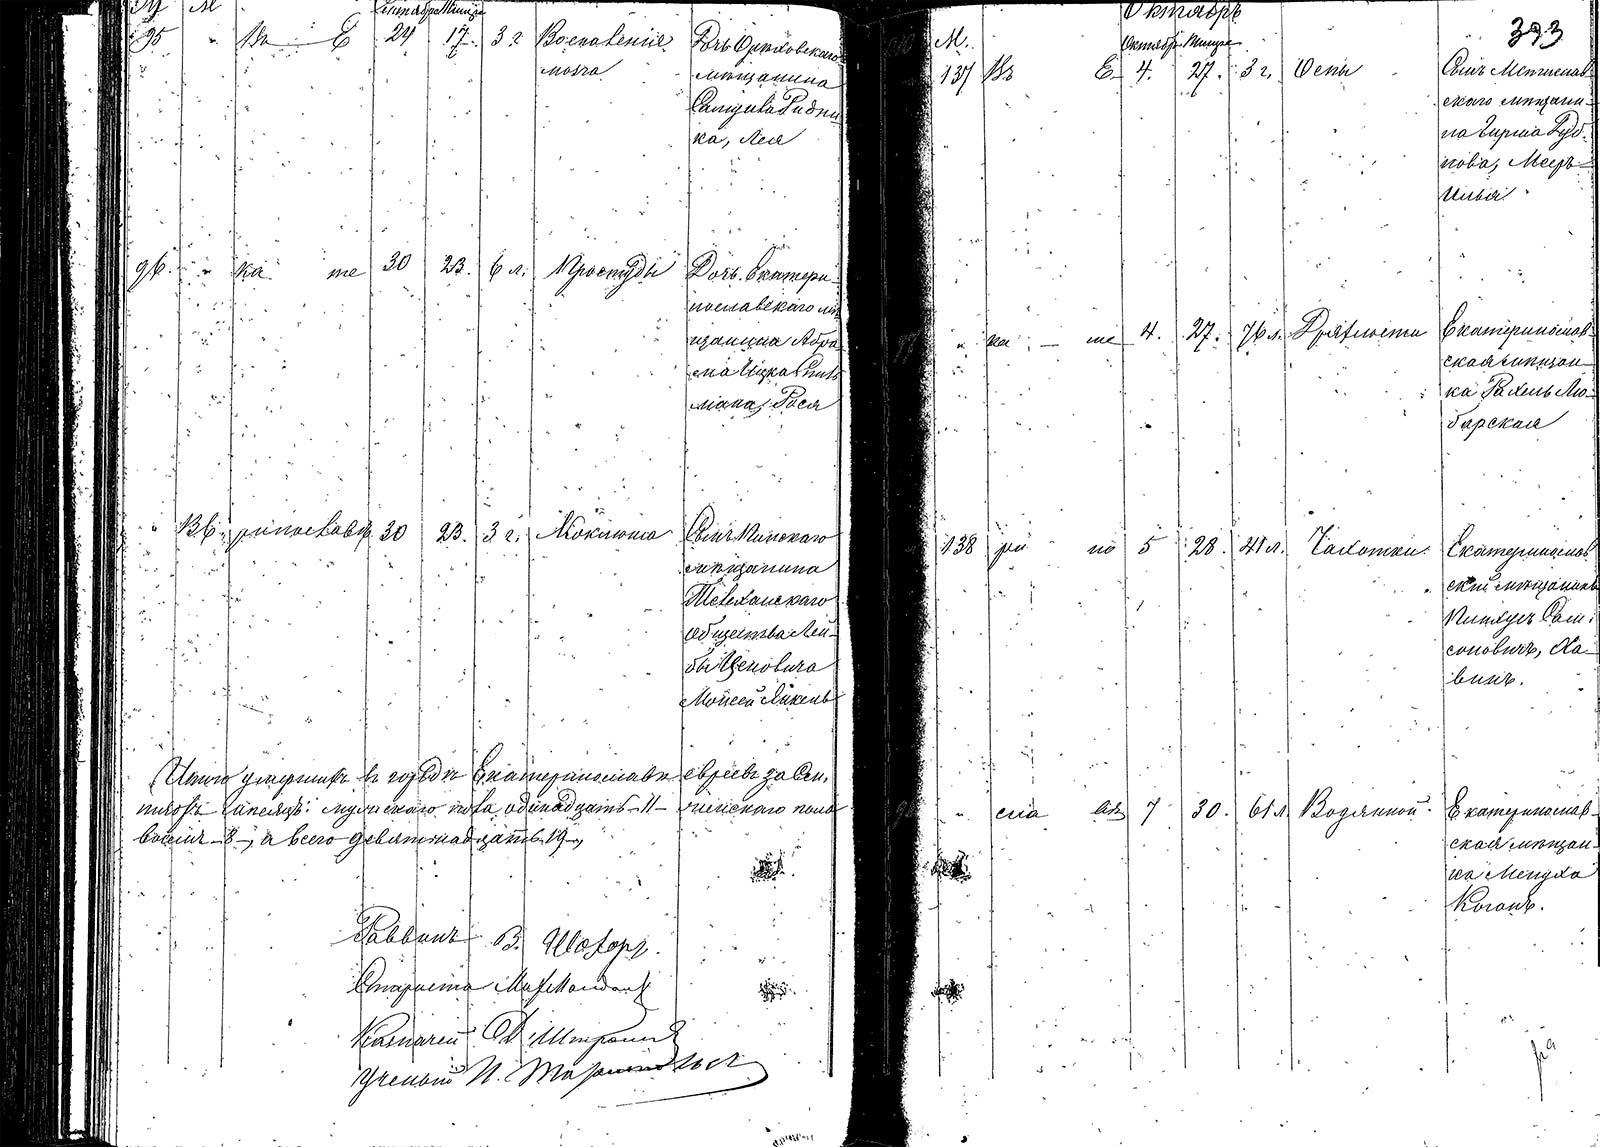 Ж М
Сентябрь Тишри
95 " Въ Е 24 17. 3 г. Воспаленіе Дочь Ореховскаго
мозга мѣщанина
Рыбни
ка, Лея
96. " ка те 30 23. 6 л. Простуды Дочь Екатери
нославскаго мѣ
щанина Абра
ма Ицка
мана, Рася
" 136. ринославѣ 30 23. 3 г. Коклюша Сынъ Пинскаго
мѣщанина
Телеханскаго
общества Лей
бы
Мойсей
Итого умершихъ въ городѣ Екатеринославѣ евреевъ за Сен
тябрь мѣсяцъ: мужскаго пола одинадцать - 11 - женскаго пола
восемь - 8 -, а всего девятнадцать - 19 -,
Раввинъ В. Шахоръ.
Староста
Казначей
Ученый И.
Октябрь 393
М. Октябрь Тишре
137 Въ Е 4. 27. 3 г. Оспы Сынъ Мстислав
скаго мѣщани
на Гирша Руб
нова, Мееръ
Илья
97 " ка те 4. 27. 76 л. Дряхлости Екатеринослав
ская мѣщан
ка Рахель Лю
барская
138 ри но 5 28. 41 л. Чахотки. Екатеринослав
скій мѣщанинъ
Пинхусъ Сам
соновичъ, Ха
винъ.
98 " сла вѣ 7 30. 61 л. Водянной. Екатеринослав
ская мѣщан
ка Менуха
Коганъ.